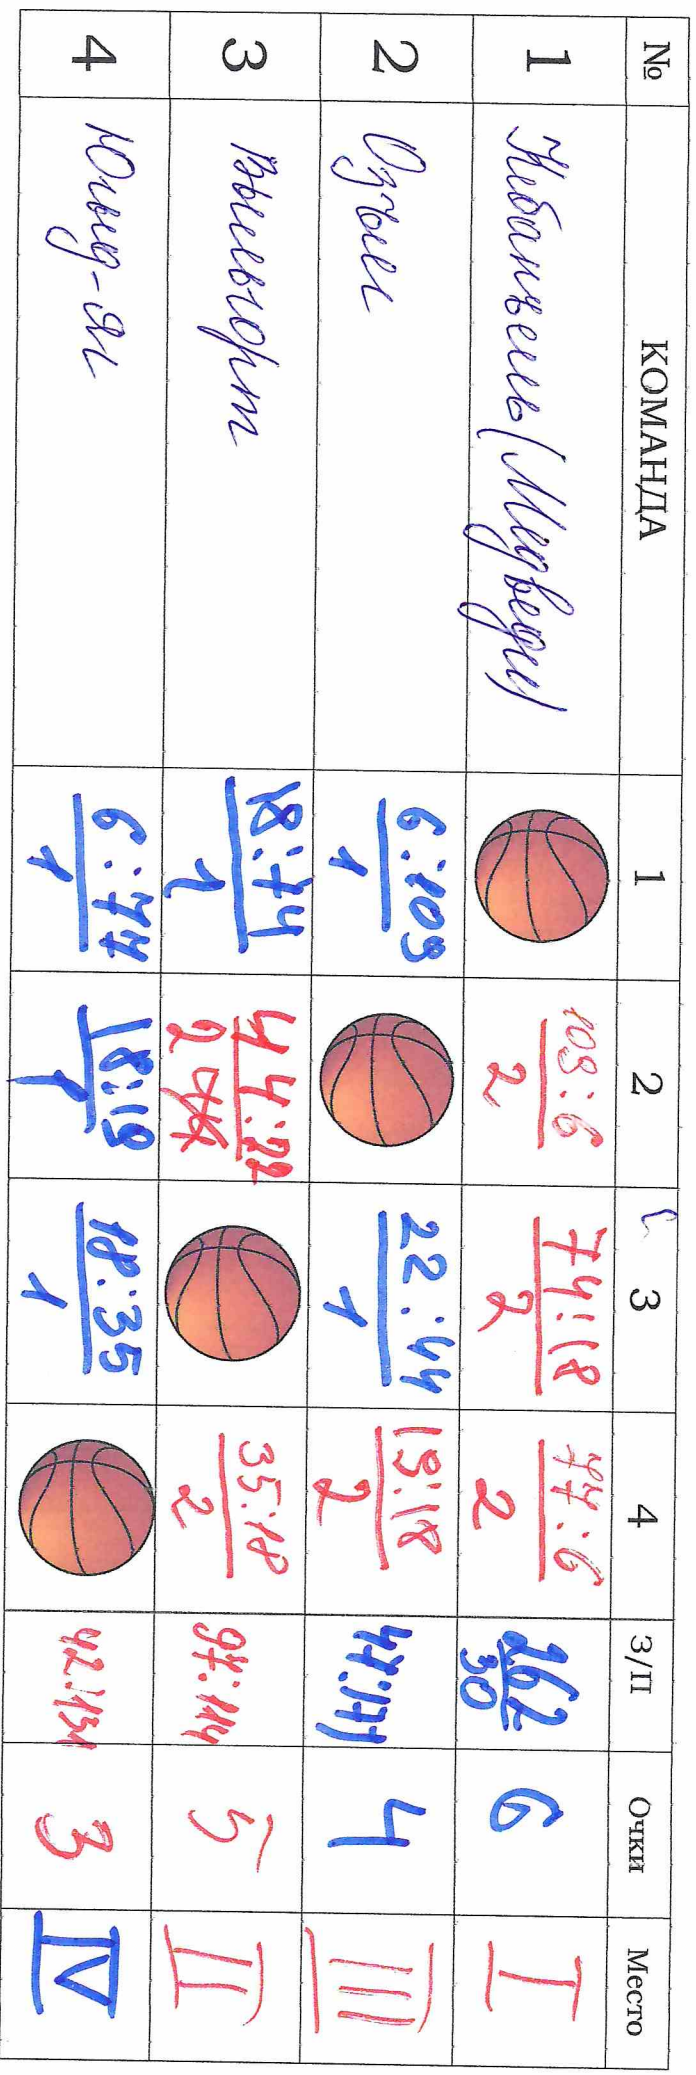 № КОМАНДА 1 2 3 4 З/П Очки Место
1 Кебанъёль (Медведи) 109:6 2 74:18 2 77:6 2 262 30 6 I
2 Озъёль 6:109 1 22:44 1 19:18 2 47:171 4 III
3 Выльгорт 18:74 1 44:22 2 35:18 2 97:114 5 II
4 Югыд-Яг 6:77 1 18:19 1 18:35 1 42:131 3 IV